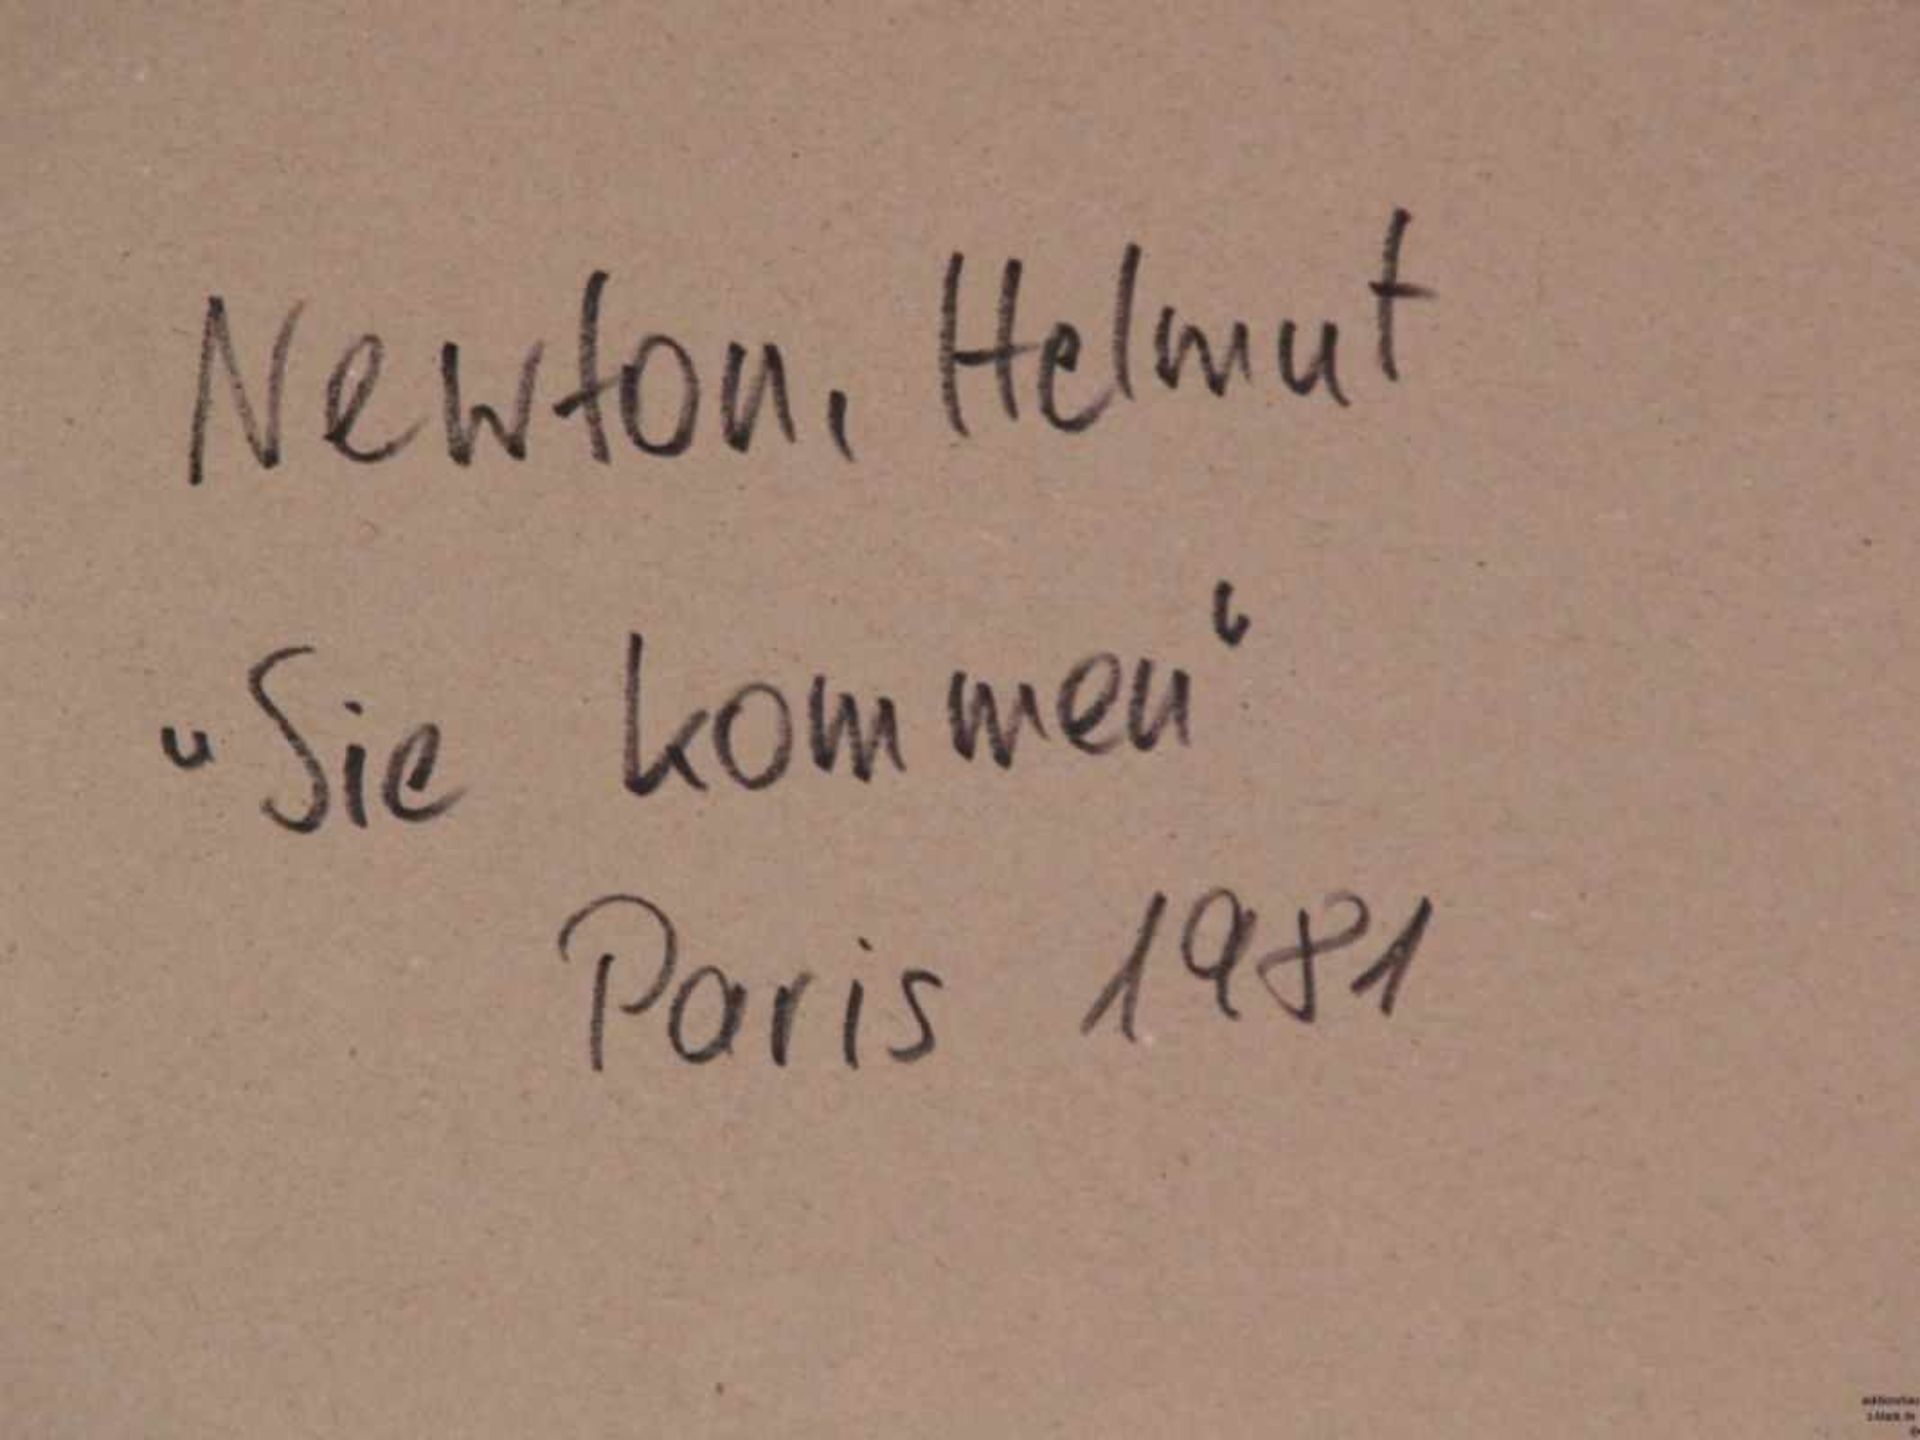 Newton, Helmut
"Sie kommen"
Paris 1981